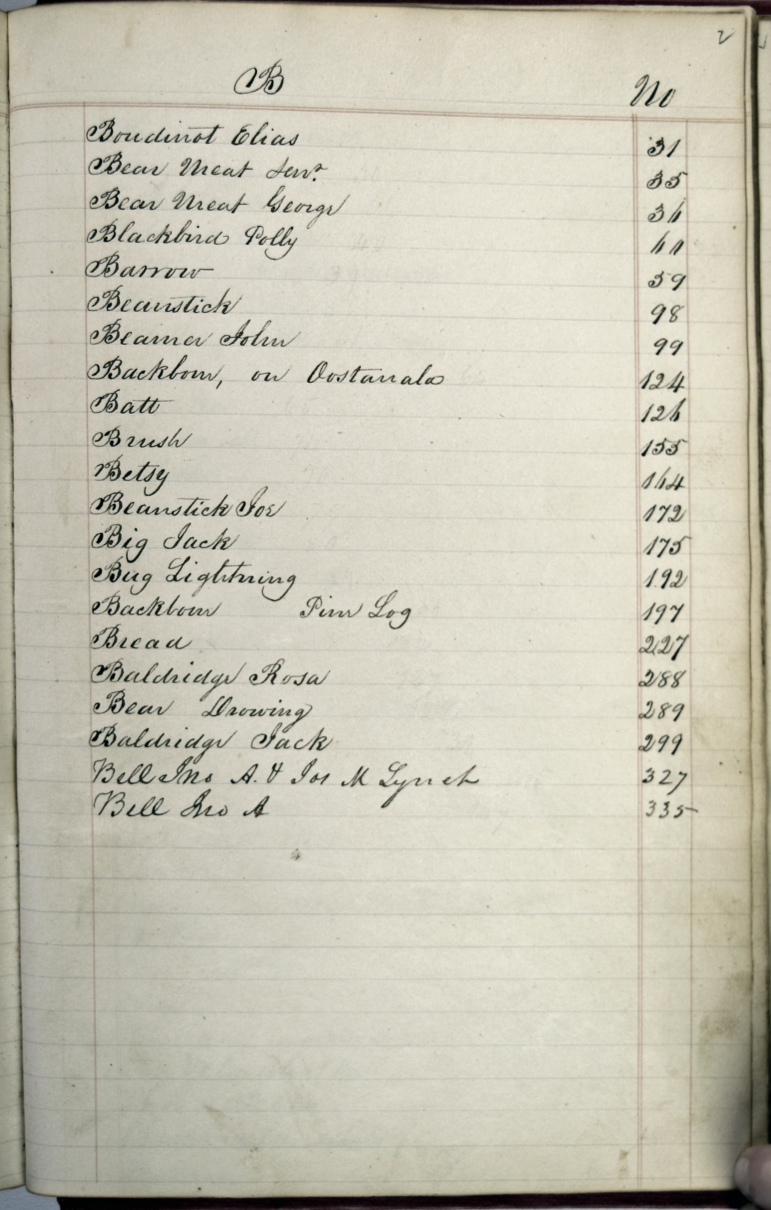 2
B No
Boudinot Elias 31
Bear Meat Senr. 35
Bear Meat George 36
Blackbird Polly
Barrow 59
Beanstick 98
Beamer John 99
Backbone, on Oostanala 124
Batt 126
Brush 155
Betsy 164
Beanstick Joe 172
Big Jack 175
Bug Lightning 192
Backbone Pine Log 197
Bread 227
Baldridge Rosa 288
Bear Drowing 289
Baldridge Jack 299
Bell Jno A. & Jos M Lynch 327
Bell Jno A 335